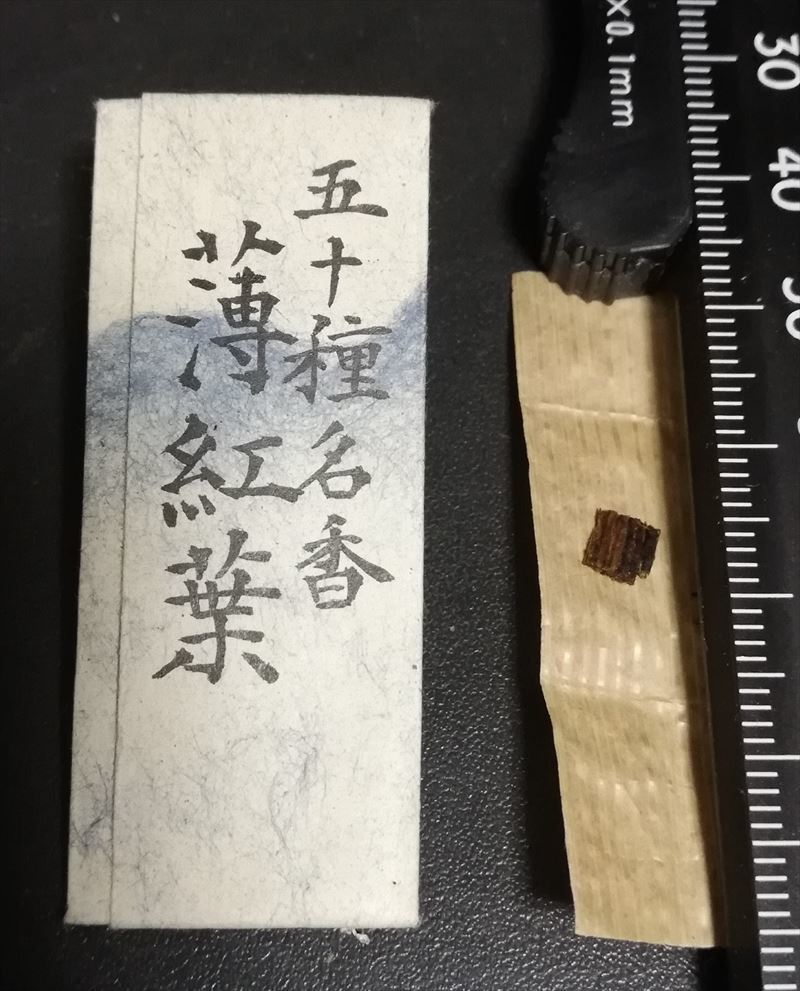 五十種名香
薄紅葉
×0.1mm
30
40